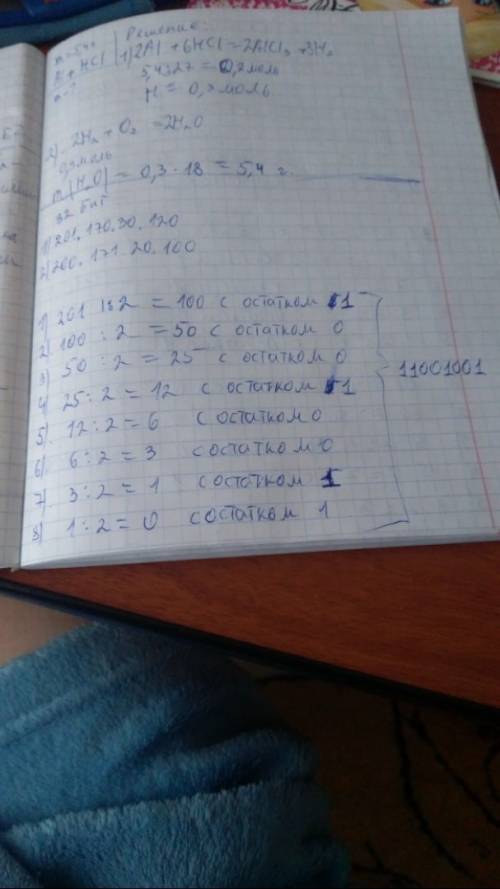 Решение:
m = 5,4 г
Al + HCl
1) 2Al + 6HCl = 2AlCl₃ + 3H₂
m - ?
5,4 : 27 = 0,2 моль
H = 0,3 моль
2) 2H₂ + O₂ = 2H₂O
0,3 моль
m(H₂O) = 0,3 · 18 = 5,4 г.
32 бит
1) 201. 170. 30. 120
2) 200. 171. 20. 100
1) 201 : 2 = 100 с остатком 1
2) 100 : 2 = 50 с остатком 0
3) 50 : 2 = 25 с остатком 0
4) 25 : 2 = 12 с остатком 1
5) 12 : 2 = 6 с остатком 0
6) 6 : 2 = 3 с остатком 0
7) 3 : 2 = 1 с остатком 1
8) 1 : 2 = 0 с остатком 1
11001001